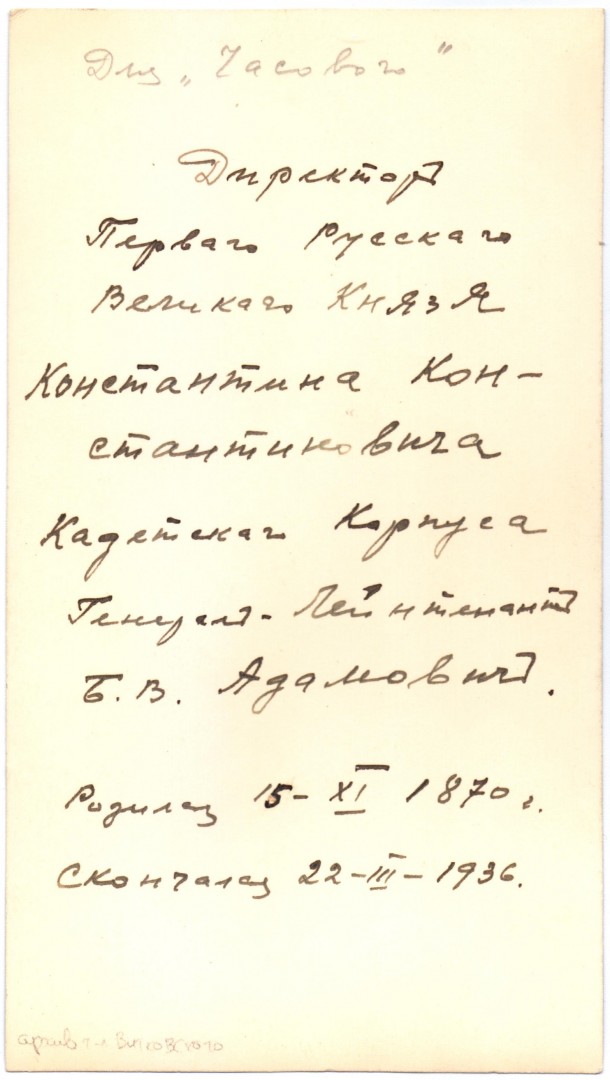 Для „Часового"
Директоръ
Перваго Русскаго
Великаго Князя
Константина Кон-
стантиновича
Кадетскаго Корпуса
Генералъ-Лейтенантъ
Б. В. Адамовичъ.
Родился 15-XI 1870 г.
Скончался 22-III-1936.
архив